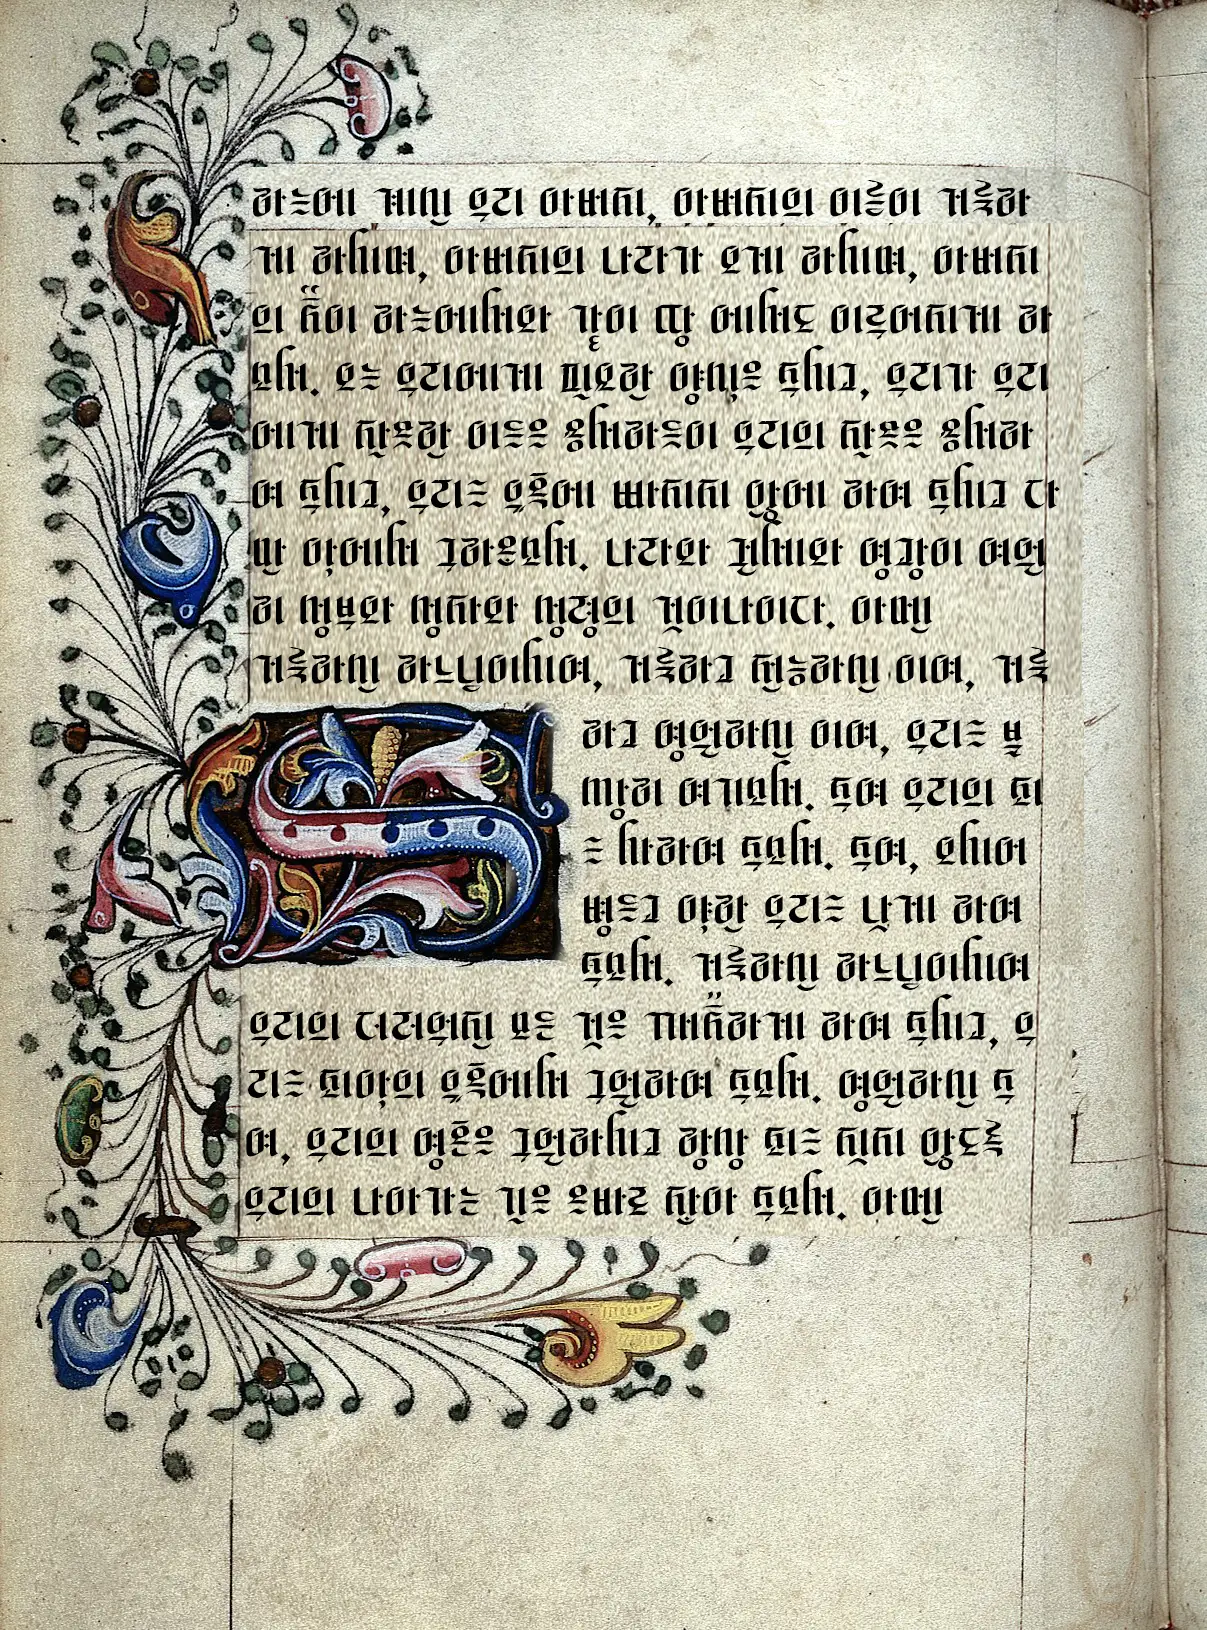 하늘에 계신 우리 아버지, 아버지의 이름이 거룩하
게 하시며, 아버지의 나라가 오게 하시며, 아버지
의 뜻이 하늘에서와 같이 땅 에서도 이루어지게 하
소서. 오늘 우리에게 필요한 양식을 주시고, 우리가 우리
에게 잘못한 이들을 용서하듯이 우리의 잘못을 용서하
여 주시고, 우리를 유혹에 빠지지 않에 하여 주시고 다
만 악에서 구하소서. 나라와 권세와 영광이 영원
히 성부와 성자와 성령의 것이나이다. 아멘
거룩하신 하느님이시여, 거룩하고 전능하신 이여, 거룩
하고 영원하신 이여, 우리를 불
쌍히 여기소서. 주여 우리의 죄
를 사하여 주소서. 주여, 오시어
병들고 악한 우리를 낫게 하여
주소서. 거룩하신 하느님이시여
우리의 더러워진 모든 것을 깨끗하게 하여 주시고, 우
리를 죄악의 유혹에서 구원하여 주소서. 영원하신 주
여, 우리의 영혼을 구원하시고 항상 죄를 짓지 않도록
우리의 나아가는 길을 올바로 잡아 주소서. 아멘